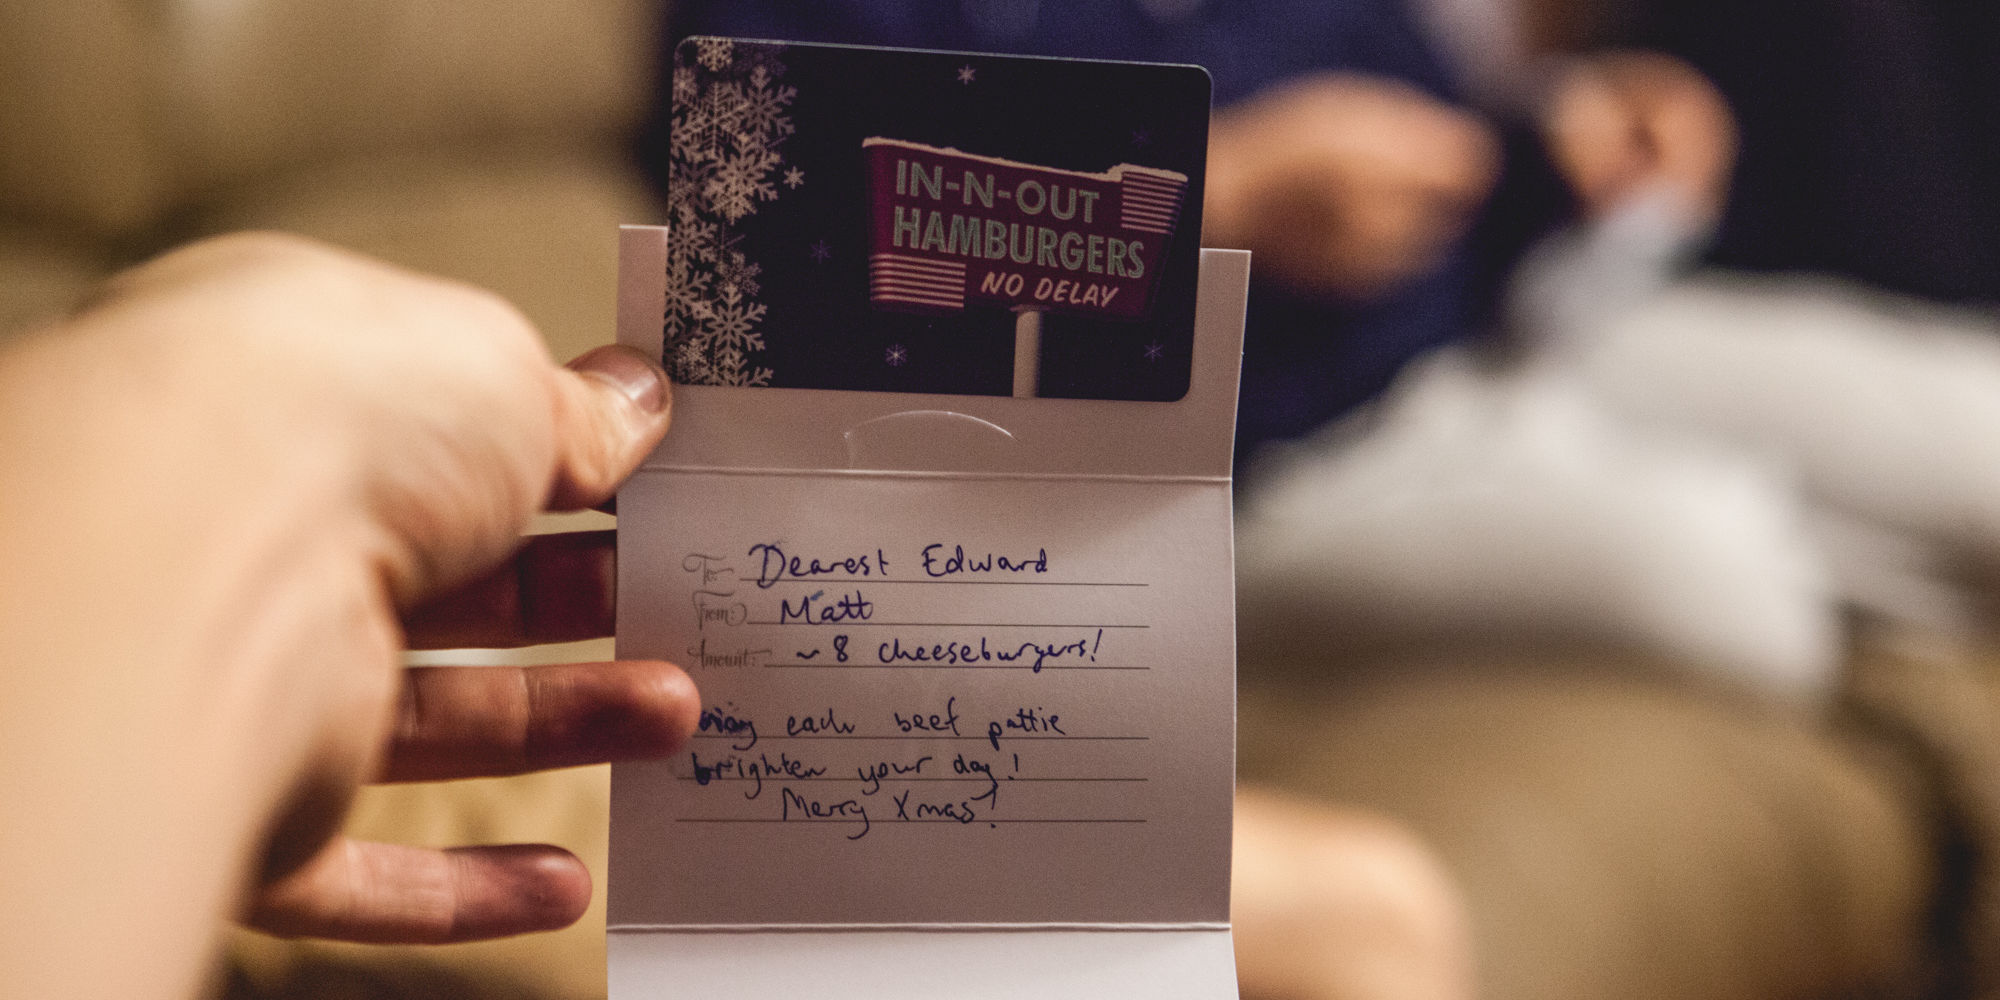 IN-N-OUT
HAMBURGERS
NO DELAY
To: Dearest Edward
From: Matt
Amount: ~ 8 cheeseburgers!
each beef pattie
brighten your day!
Merry Xmas!